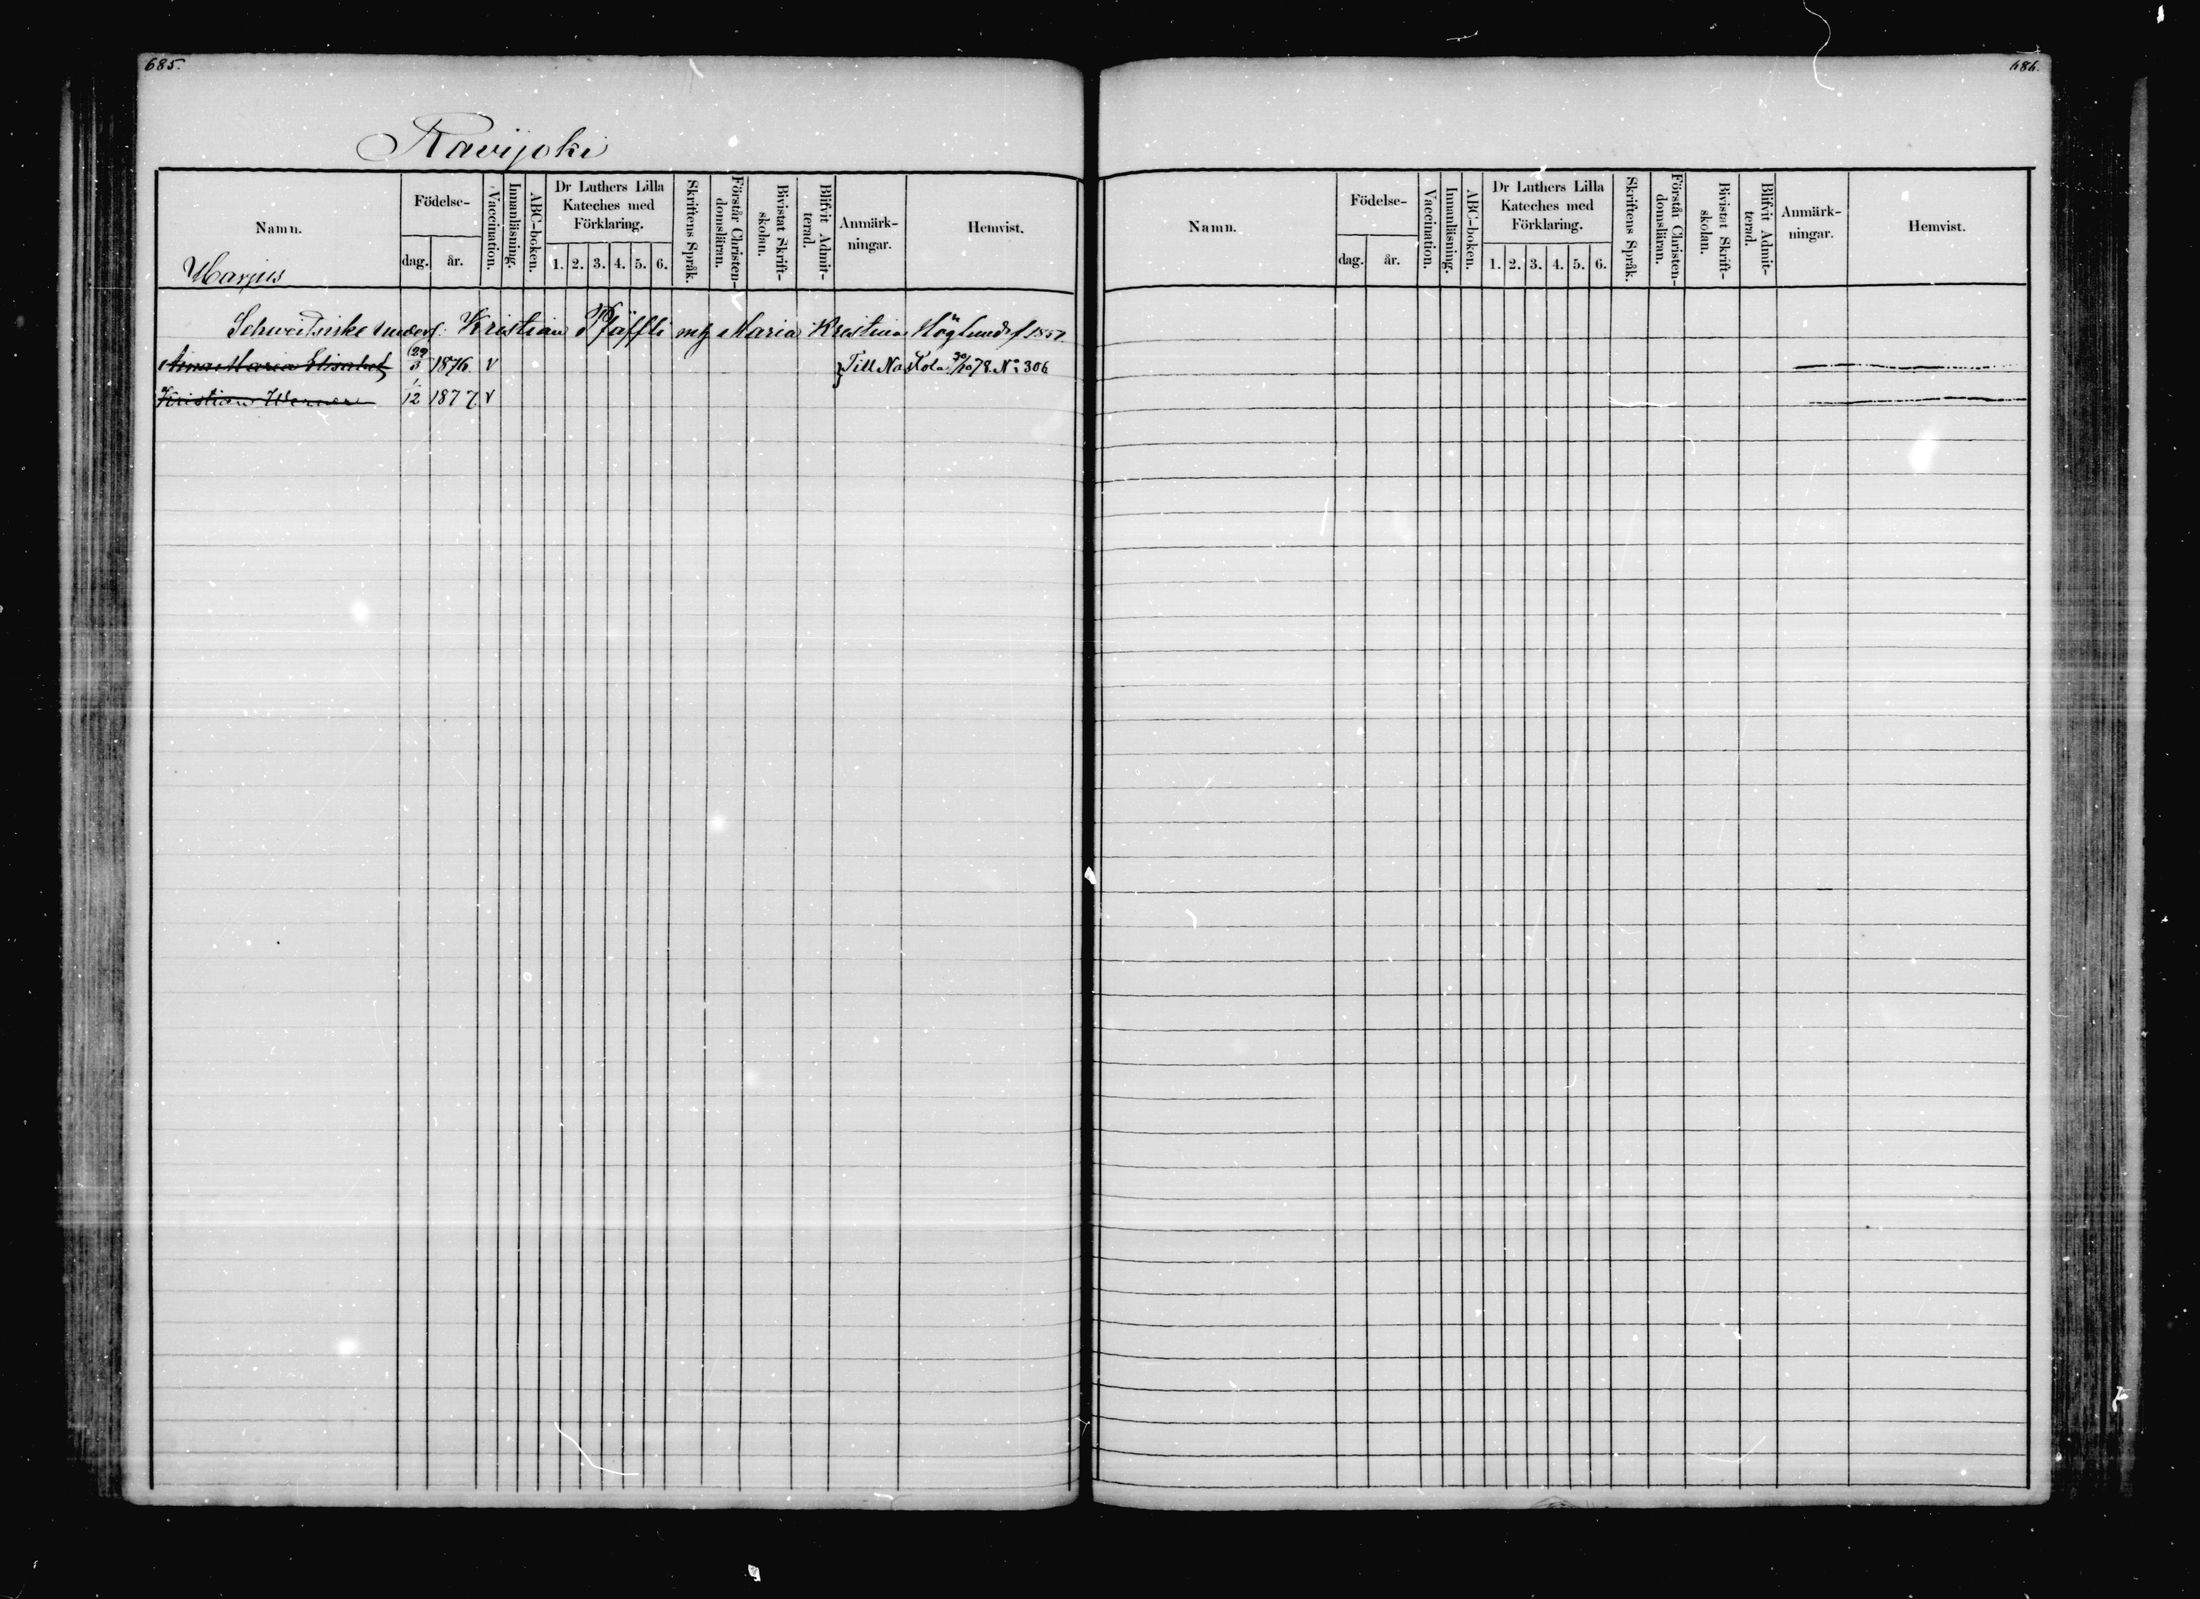 685.
Ravijoki
Namn.
Födelse-
dag.
år.
Vaccination.
Innanläsning.
ABC-boken.
Dr Luthers Lilla
Kateches med
Förklaring.
1. 2. 3. 4. 5. 6.
Skriftens Språk.
Förstår Christen-
domsläran.
Bivistat Skrift-
skolan.
Blifvit Admit-
terad.
Anmärk-
ningar.
Hemvist.
Marjus
Schweitsiske unders: Kristian Pfäffli m h Maria Kristina Höglund f 1857.
Anna Maria Elisabet 29/3 1876 v } Till Nastola 30/10 78. No: 306
Kristian Werner 1/12 1877 v
686.
Namn.
Födelse-
dag.
år.
Vaccination.
Innanläsning.
ABC-boken.
Dr Luthers Lilla
Kateches med
Förklaring.
1. 2. 3. 4. 5. 6.
Skriftens Språk.
Förstår Christen-
domsläran.
Bivistat Skrift-
skolan.
Blifvit Admit-
terad.
Anmärk-
ningar.
Hemvist.